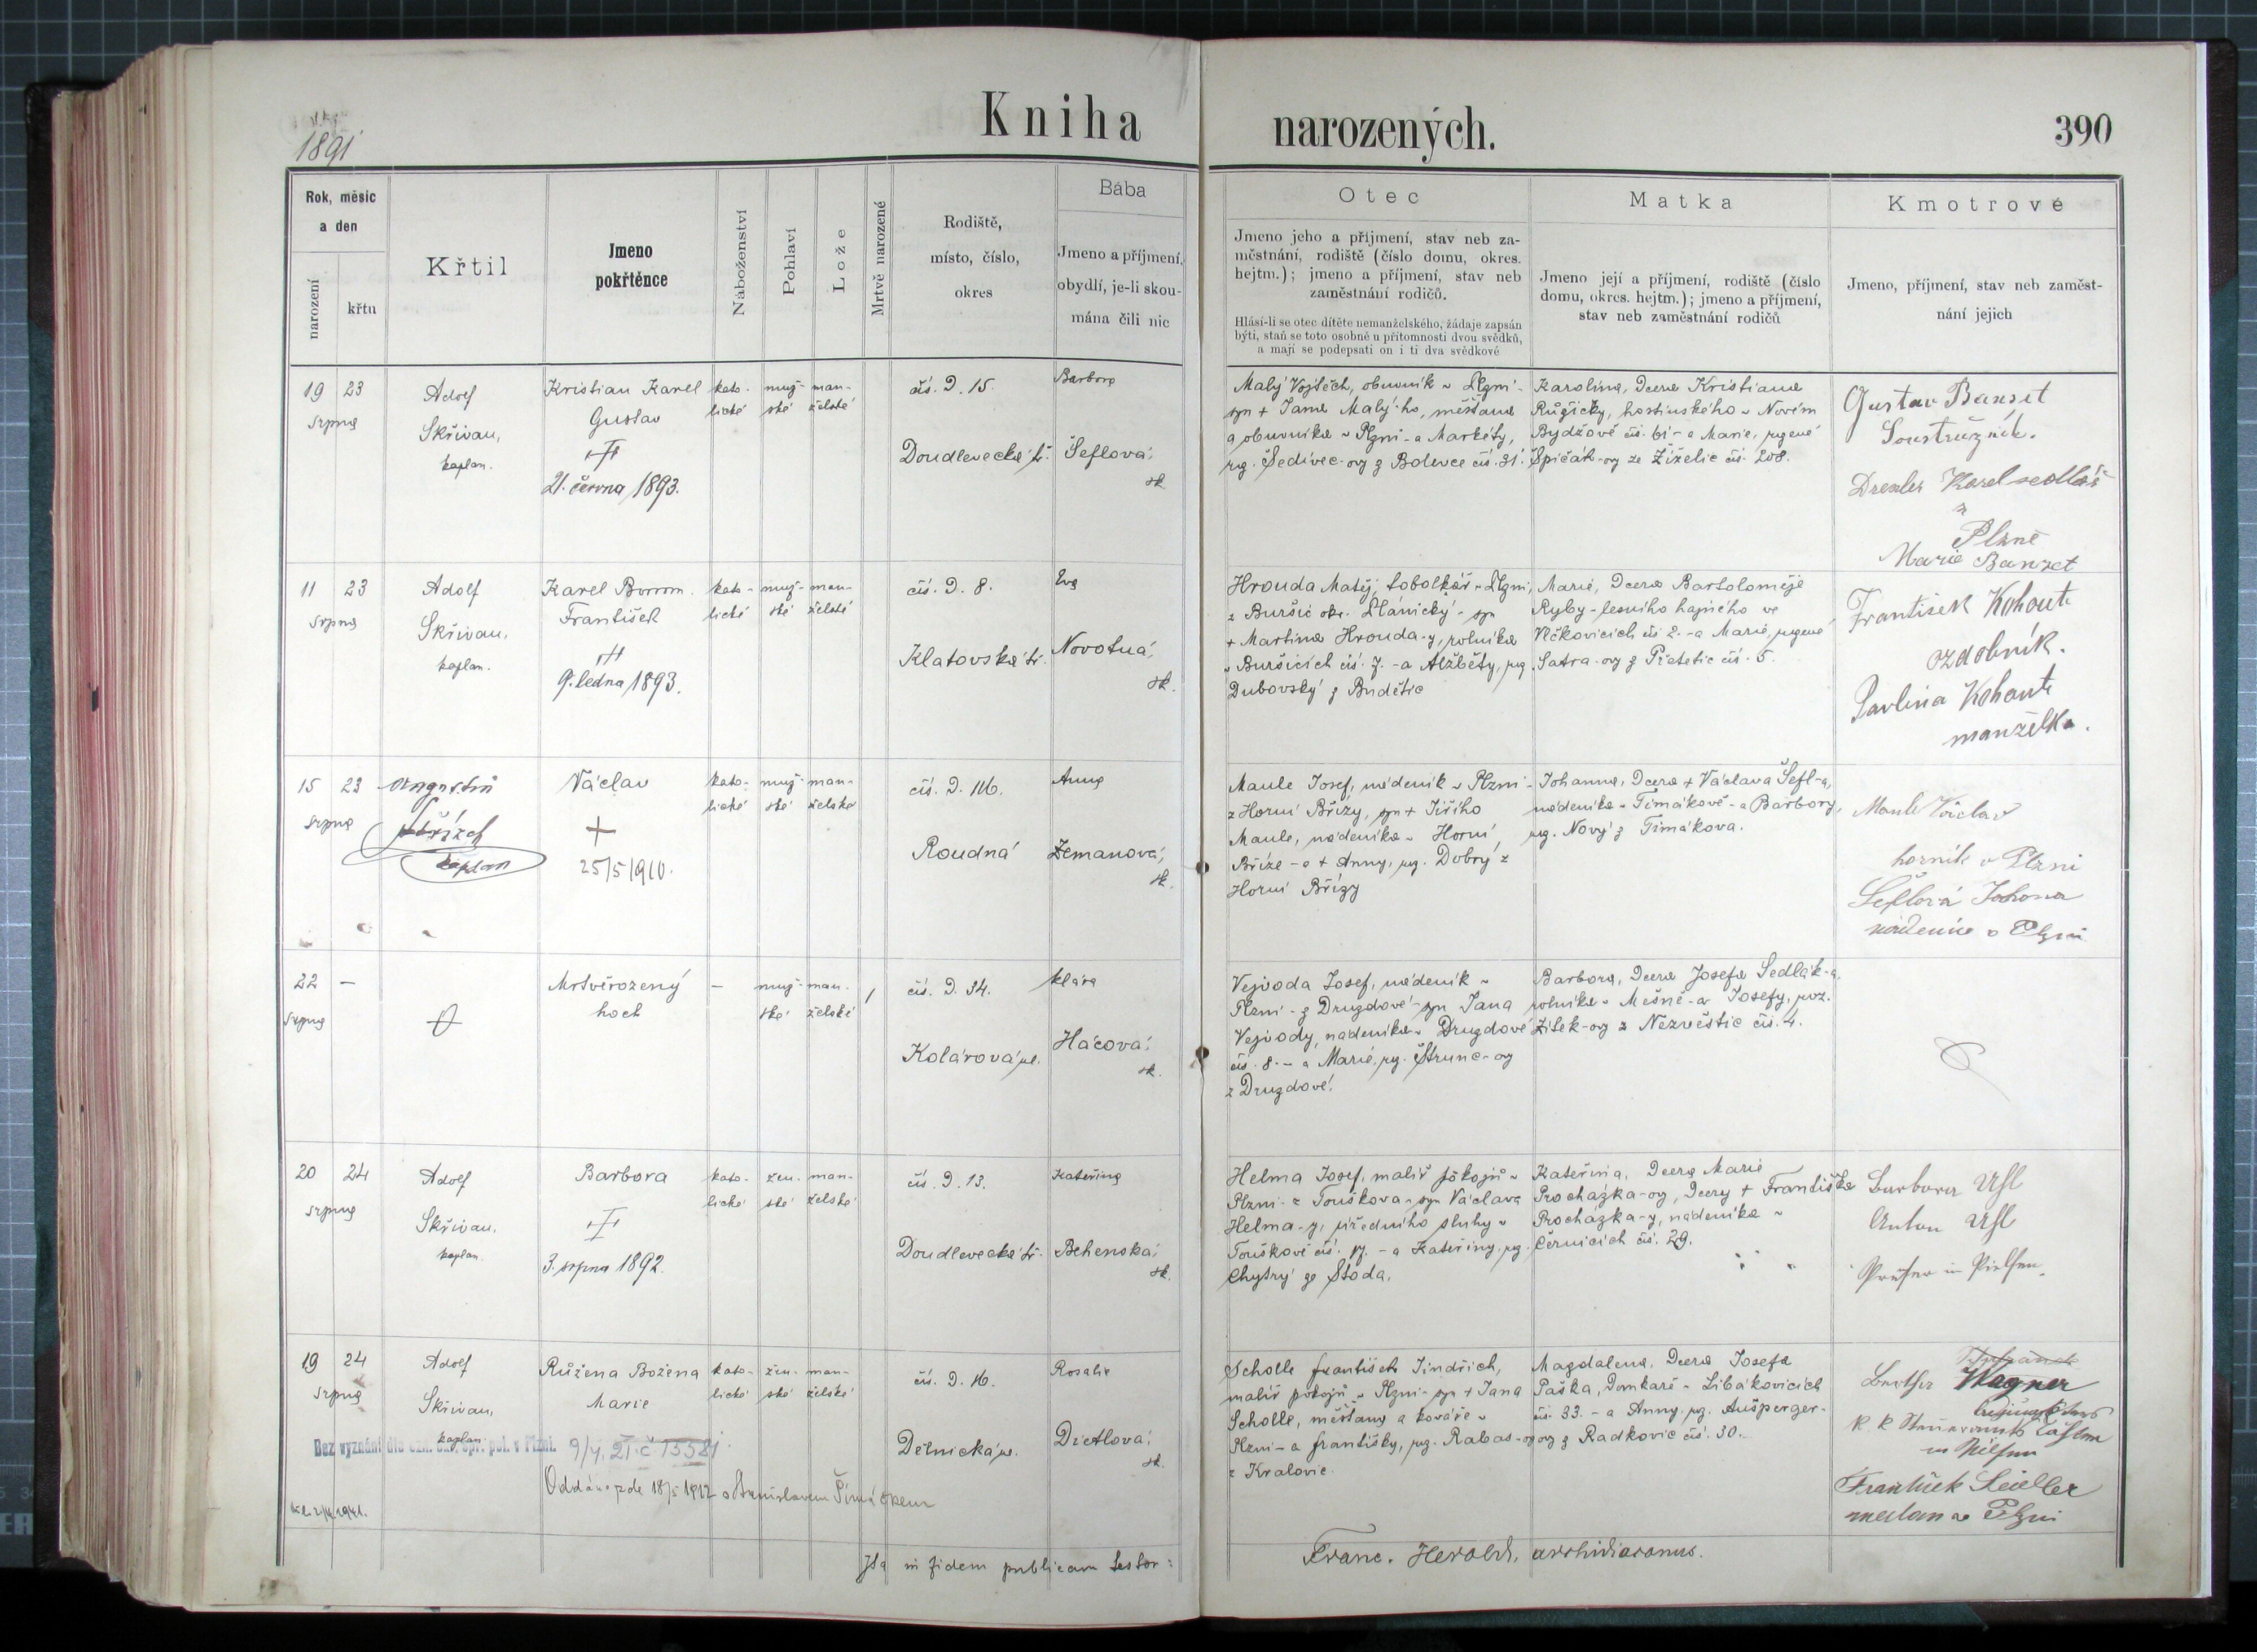 1891
Kniha narozených.
390
Rok, měsíc
a den
narození
křtu
Křtil
Jmeno
pokřtěnce
Náboženství
Pohlaví
Lože
Mrtvě narozené
Rodiště,
místo, číslo,
okres
Bába
Jmeno a příjmení,
obydlí, je-li skou-
mána čili nic
Otec
Jmeno jeho a příjmení, stav neb za-
městnání, rodiště (číslo domu, okres.
hejtm.); jmeno a příjmení, stav neb
zaměstnání rodičů.
Hlásí-li se otec dítěte nemanželského, žádaje zapsán
býti, staň se toto osobně u přítomnosti dvou svědků,
a mají se podepsati on i ti dva svědkové
Matka
Jmeno její a příjmení, rodiště (číslo
domu, okres. hejtm.); jmeno a příjmení,
stav neb zaměstnání rodičů
Kmotrové
Jmeno, příjmení, stav neb zaměst-
nání jejich
19 23
srpna
Adolf
Skřivan,
kaplan.
Kristian Karel
Gustav
21. června 1893.
kato-
lické
muž-
ské
man-
želské
čís. D. 15.
Doudlevecká tř.
Barbora
Šeflová,
sk.
Malý Vojtěch, obuvník v Plzni -
syn + Jana Malý-ho, měšťana
a obuvníka v Plzni - a Markéty,
roz. Šedivec-ovy z Bolevce čís. 31.
Karolina, dcera Kristiana
Růžičky, hostinského v Novém
Bydžově čís. 61 - a Marie, rozené
Špičák-ovy ze Žíželic čís. 208.
Gustav Banset
Soustružník.
Drexler Karel sedlář
z
Plzně
Marie Banset
11 23
srpna
Adolf
Skřivan,
kaplan.
Karel Borrom.
František
9. ledna 1893.
kato-
lické
muž-
ské
man-
želské
čís. D. 8.
Klatovská tř.
Eva
Novotná,
sk.
Hrouda Matěj, tobolkář v Plzni,
z Buršic okr. Plánický - syn
+ Martina Hrouda-y, rolníka
v Buršicích čís. 7. - a Alžběty, roz.
Dubovský z Budětic
Marie, dcera Bartoloměje
Ryby - lesního hajného ve
Vlčkovicích čís 2. - a Marie, rozené
Satra-ovy z Přetetic čís. 5.
František Kohout
ozdobník.
Pavlina Kohout
manželka.
15 23
srpna
Augustin
kaplan
Václav
+
25/5 1910.
kato-
lické
muž-
ské
man-
želské
čís. D. 116.
Roudná
Anna
Zemanová,
sk.
Maule Josef, nádeník v Plzni -
z Horní Břízy, syn + Jiřího
Maule, nádeníka v Horní
Bříze - a + Anny, roz. Dobrý z
Horní Břízy
Johanna, dcera + Václava Šefl-a,
nádeníka v Timákově - a Barbory,
roz. Nový z Timákova.
Maule Václav
horník v Plzni
Šeflová Johana
nádenice v Plzni
22 -
srpna
Mrtvěrozený
hoch
-
muž-
ské
man-
želské
1
čís. D. 34.
Kolárová ul.
Klára
Hácová,
sk.
Vejvoda Josef, nádeník v
Plzni - z Druzdové - syn Jana
Vejvody, nádeníka v Druzdové
čís. 8. - a Marie, roz. Štrunc-ovy
z Druzdové.
Barbora, dcera Josefa Sedlák-a,
rolníka v Mešně - a Josefy, roz.
Žitek-ovy z Nezvěstic čís. 4.
20 24
srpna
Adolf
Skřivan,
kaplan.
Barbora
3. srpna 1892.
kato-
lické
žen-
ské
man-
želské
čís. D. 13.
Doudlevecká tř.
Kateřina
Behenská,
sk.
Helma Josef, malíř pokojů v
Plzni - z Touškova - syn Václava
Helma-y, úředního sluhy v
Touškově čís. 17. - a Kateřiny, roz.
Chytrý ze Stoda.
Kateřina, dcera Marie
Procházka-ovy, dcery + Františka
Procházka-y, nádeníka v
Černicích čís. 29.
Barbara Ašl
Anton Ašl
in Pilsen.
19 24
srpna
Adolf
Skřivan,
kaplan.
Růžena Božena
Marie
kato-
lické
žen-
ské
man-
želské
čís. D. 16.
Dělnická ul.
Rosalie
Dietlová,
sk.
Scholle František Jindřich,
malíř pokojů v Plzni - syn + Jana
Scholle, měšťana a kováře v
Plzni - a Františky, roz. Rabas-ovy
z Kralovic.
Magdalena, dcera Josefa
Paška, domkaře v Libákovicích
čís. 33. - a Anny, roz. Aušperger-
ovy z Radkovic čís. 30.
Wagner
in Pilsen
František Seidler
v Plzni
Bez vyznání dle ozn. okr. spr. pol. v Plzni. 9/4. 21. č 15581.
Oddána zde 18/5 1912 s Stanislavem Šimáčkem
Ita in fidem publicam testor:
Franc. Herold, archidiaconus.